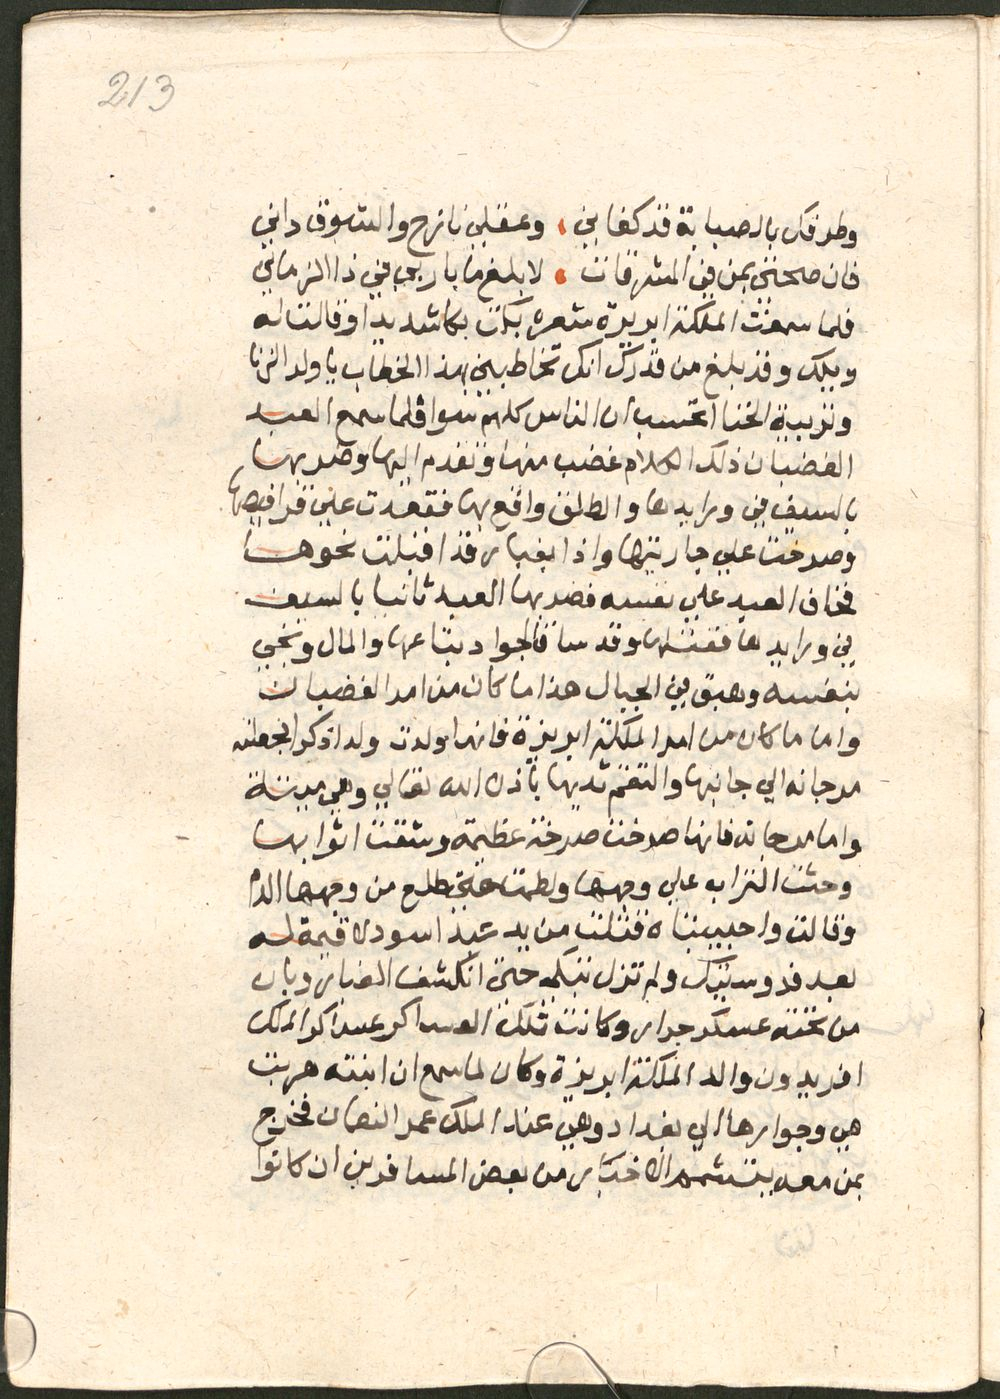 213
وطرفك بالصبابة قد كفاني ، وعقلي نازح والشوق داني
فان صحتي بمن في المشرقات ، لابلغ ما ياربي في ذا الزماني
فلما سمعت الملكة ابريزه شعره بكت بكا شديدا وقالت له
ويلك وقد بلغ من قدرك انك تخاطبني بهذا الخطاب يا ولد الزنا
وتربية الخنا اتحسب ان الناس كلهم سوا فلما سمع العبد
الغضبان ذلك الكلام غضب منها وتقدم اليها وضربها
بالسيف في وراىدها والطلق واقع بها فقعدت على قرافيصها
وصرخت على جاريتها واذا بغبار قد اقبلت نحوها
فخاف العبد على نفسه فضربها العبد ثانيا بالسيف
في وراىدها فقتلها وقد ساق الجواد بتاعها والمال ونجي
بنفسه وهبق في الجبال هذا ما كان من امر الغضبان
واما ما كان من امر الملكة ابريزة فانها ولدت ولدا ذكرا فجعلته
مرجانه الي جانبها والتقم ثديها باذن الله تعالي وهي ميتة
واما مرجانه فانها صرخت صرخة عظيمة وشقت اثوابها
وحثت التراب علي وجهها ولطمت حتى طلع من وجهها الدم
وقالت واحبيبتاه قتلت من يد عبد اسود لا قيمة له
بعد فروسيتك ولم تزل تبكي حتى انكشف الغبار وبان
من تحته عسكر جرار وكانت تلك العساكر عساكر الملك
افريدون والد الملكة ابريزة وكان لما سمع ان ابنته هربت
هي وجوارها الي بغداد وهي عند الملك عمر النعمان فخرج
بمن معه يتشمم الاخبار من بعض المسافرين ان كانوا